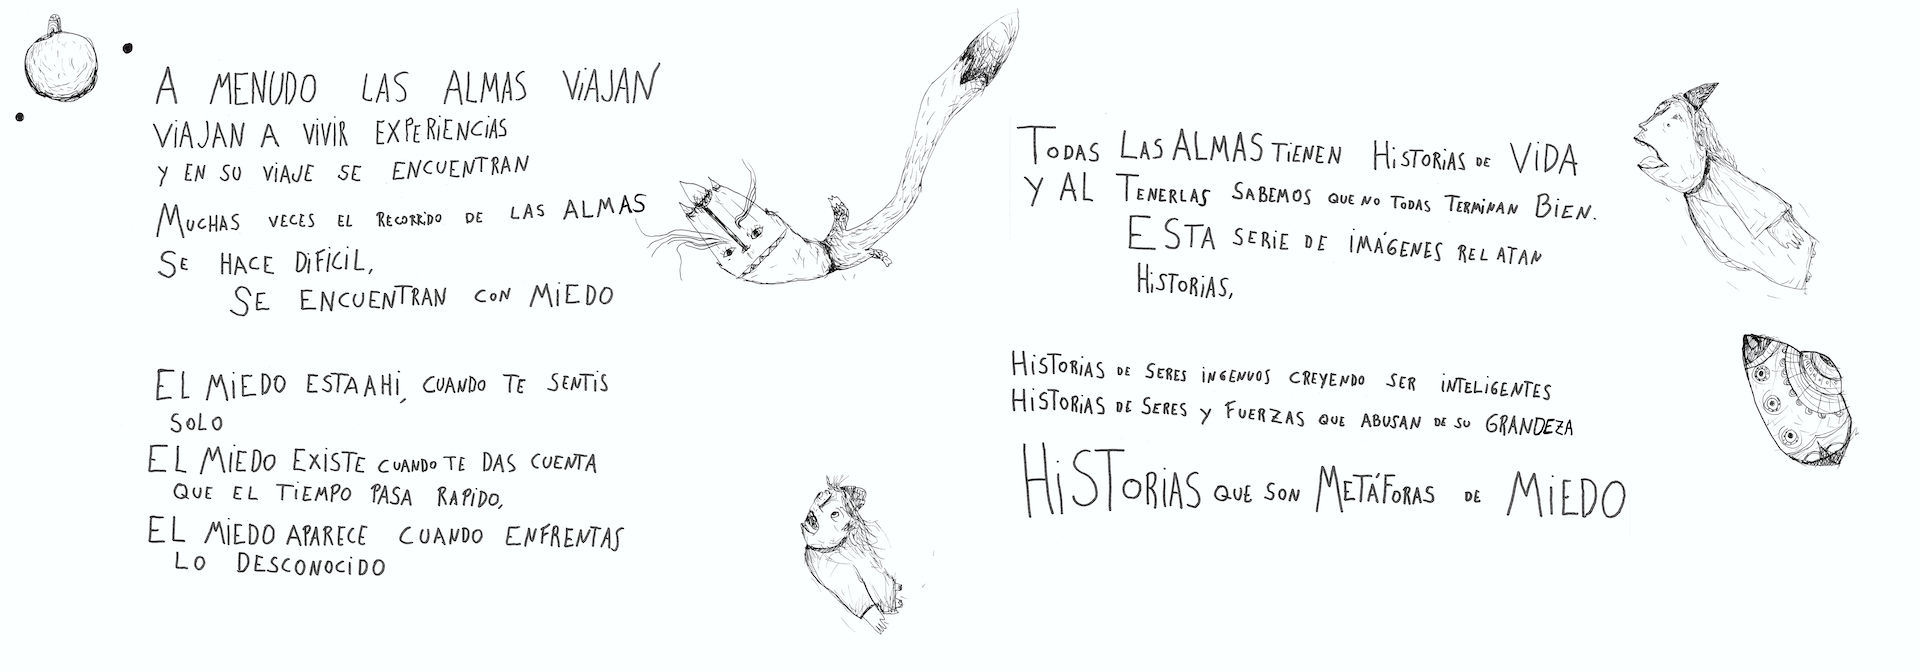 A MENUDO LAS ALMAS ViAJAN
ViAJAN A ViViR EXPERiENCiAS
Y EN SU ViAJE SE ENCUENTRAN
MUCHAS VECES EL RECORRiDO DE LAS ALMAS
SE HACE DiFiCiL,
SE ENCUENTRAN CON MiEDO
EL MiEDO ESTA AHi, CUANDO TE SENTiS
SOLO
EL MiEDO EXiSTE CUANDO TE DAS CUENTA
QUE EL TiEMPO PASA RAPiDO,
EL MiEDO APARECE CUANDO ENFRENTAS
LO DESCONOCiDO
TODAS LAS ALMAS TiENEN HiSTORiAS DE ViDA
Y AL TENERLAS SABEMOS QUE NO TODAS TERMiNAN BiEN.
ESTA SERiE DE iMÁGENES RELATAN
HiSTORiAS,
HiSTORiAS DE SERES iNGENUOS CREYENDO SER iNTELiGENTES
HiSTORiAS DE SERES Y FUERZAS QUE ABUSAN DE SU GRANDEZA
HiSTORiAS QUE SON METÁFORAS DE MiEDO